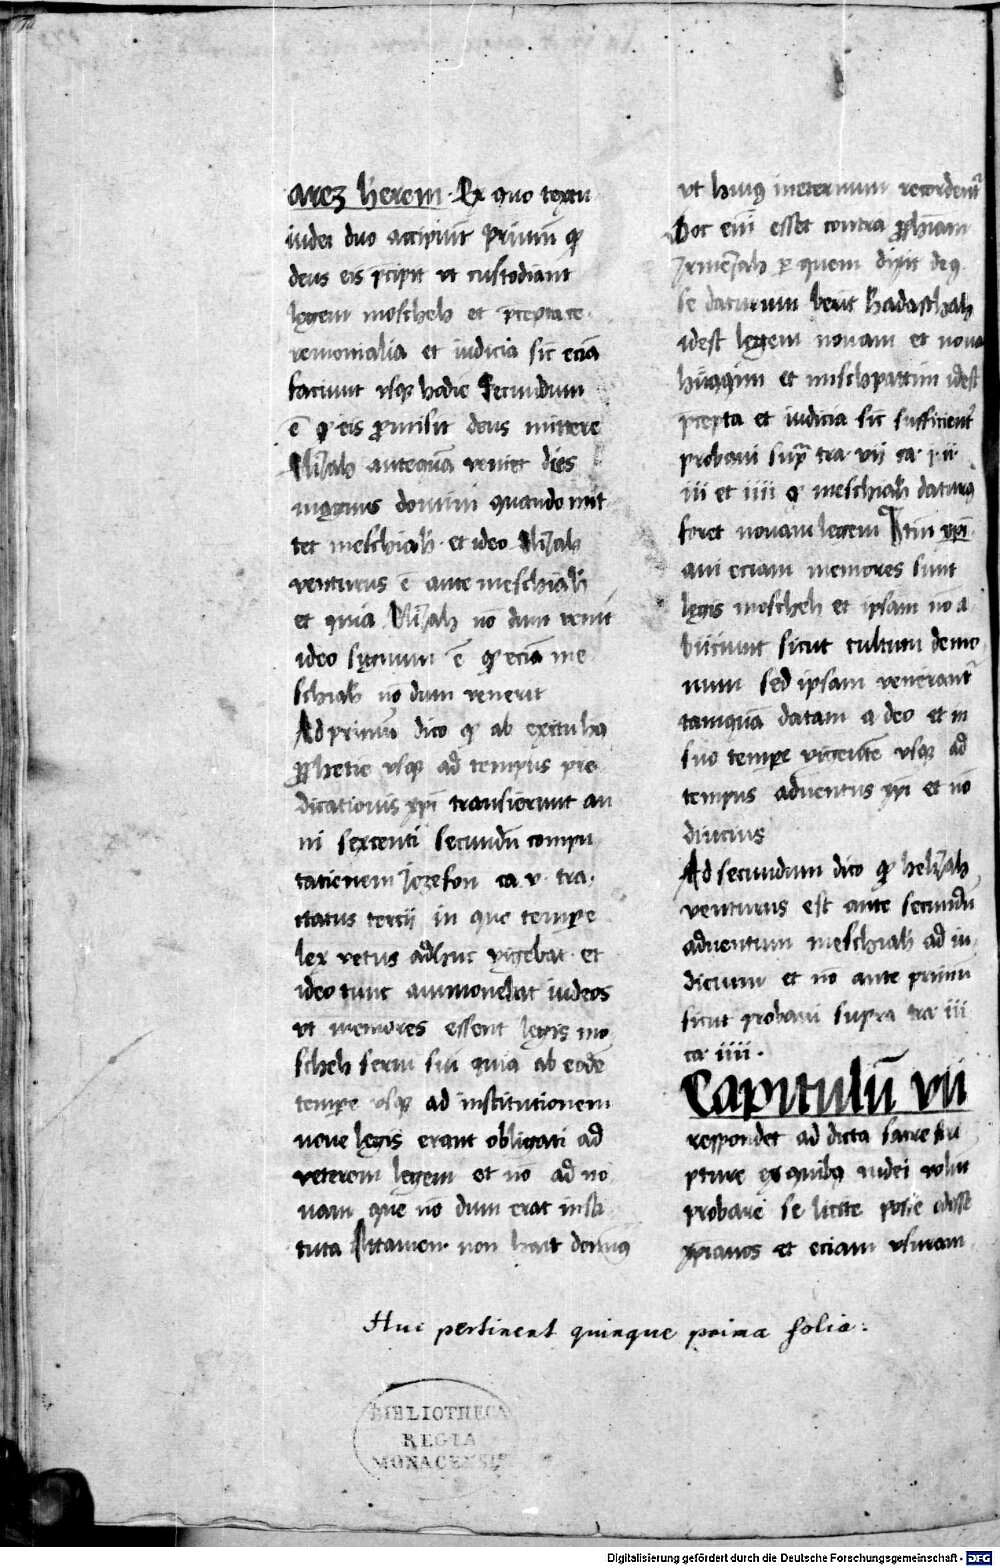 arez herem. Ex quo textu
iudei duo accipiūt Primū ꝙ
deus eis p̄cipit vt custodiant
legem moscheh et p̄cepta ce
remonialia et iudicia sic eciā
faciunt vsqꝫ hodie Secundum
ē ꝙ eis ꝓmisit deus mittere
antequā veniet dies
magnus domini quando mit
tet meschiah et ideo
venturus ē ante meschiah
et quia nō dum venit
ideo signum ē ꝙ eciā me
schiah nō dum venerit
Ad primū dico ꝙ ab exitu huꝰ
ꝓphetie vsqꝫ ad tempus pre
dicationis xp̄i transierunt an
ni sexcenti secundū compu
tationem Jozefon ca v. tra
ctatus tercij in quo tempe
lex vetus adhuc vigebat et
ideo tunc ammonebat iudeos
vt memores essent legis mo
scheh serui sui quia ab eodē
tempe vsqꝫ ad institutionem
noue legis erant obligati ad
veterem legem et nō ad no
uam que nō dum erat insti
tuta Attamen non hait
vt huiꝰ ineternum recordent᷑
Hoc eni esset contra ꝓphiam
Jrmeiah ꝑ quem dixit deꝰ
se daturum berit hadaschah
idest legem nouam et noua
huqqim et mischpattim idest
p̄cepta et iudicia sic sufficient᷑
probaui sup̄ tra vij ca. j. ij.
iij et iiij ꝙ meschiah daturꝰ
foret nouam legem Attn̄ xp̄i
ani eciam memores sunt
legis moscheh et ipsam nō a
biiciunt sicut cultum demo
num sed ipsam venerant᷑
tamquā datam a deo et in
suo tempe vigente vsqꝫ ad
tempus aduentus xp̄i et nō
diucius
Ad secundum dico ꝙ heliah
venturus est ante secundū
aduentum meschiah ad iu
dicium et nō ante primū
sicut probaui supra tra iii
ca. iiii.
Capitulū vii
respondet ad dicta sacre scri
pture ex quibꝰ iudei volūt
probare se licite posse
xpianos et eciam vsuram
Huc pertinent quinque prima folia.
BIBLIOTHECA
REGIA
MONACENSIS
Digitalisierung gefördert durch die Deutsche Forschungsgemeinschaft - DFG